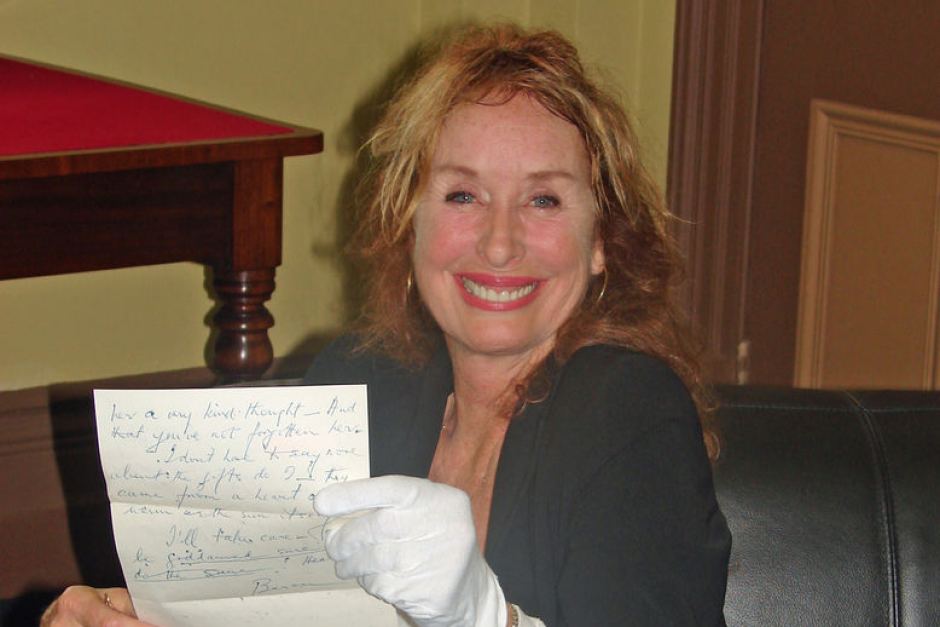 her a very kind thought — And
that you've not forgotten her.
I don't have to say more
about the gifts do I — they
came from a heart as
warm as the sun
I'll take care —
be goddamned sure
do the same